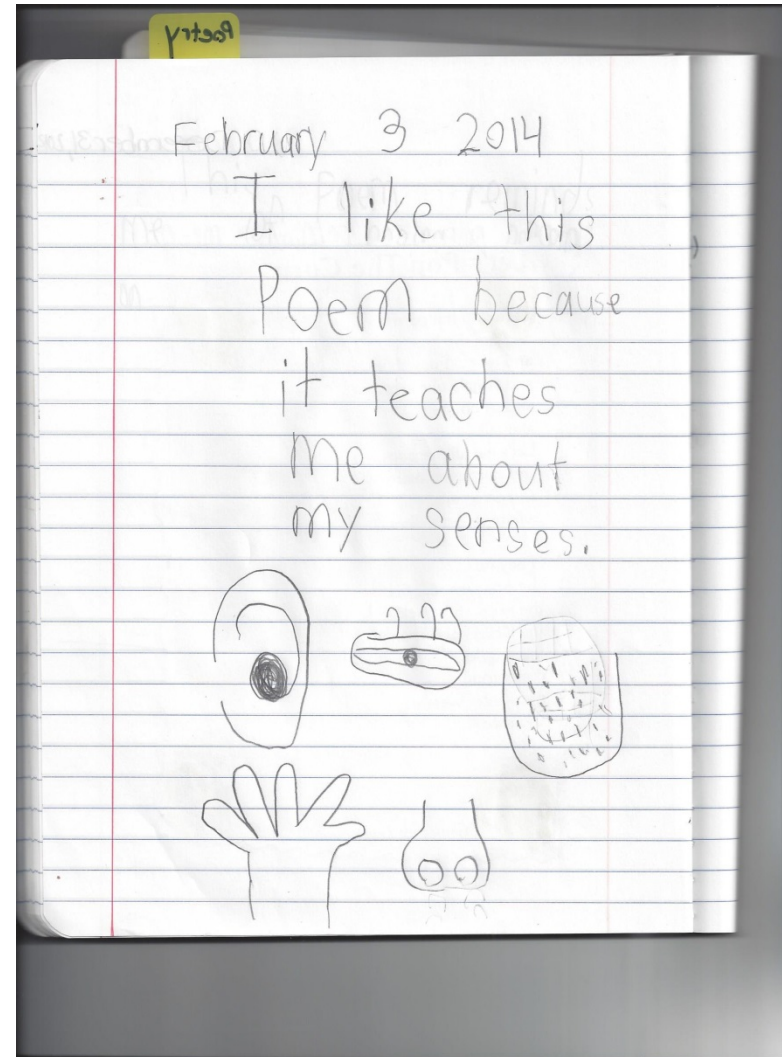 Poetry
February 3 2014
I like this
Poem because
it teaches
me about
my senses.